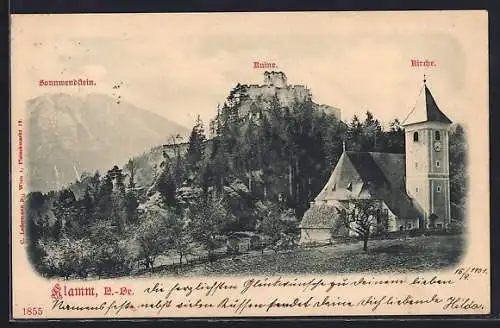 Sonnwendstein.
Ruine.
Kirche.
C. Ledermann jr. Wien I. Fleischmarkt 12.
Klamm, N.-Oe.
1855
Die herzlichsten Glückwünsche zu deinem lieben
15/4. 1901.
Namensfeste nebst vielen Grüssen sendet dir, dich liebende Hilda.